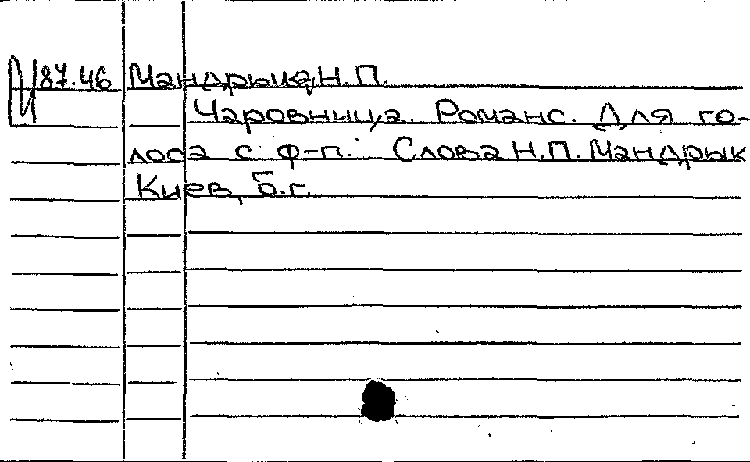 И87.46 Мандрыка, Н.П.
Чаровница. Романс. Для го-
лоса с ф-п. Слова Н.П. Мандрык
Киев, б.г.